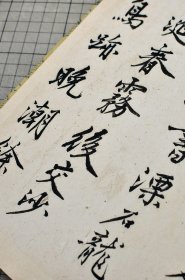 書漂石龍
迎春霧後交沙
鳥跡晚潮餘